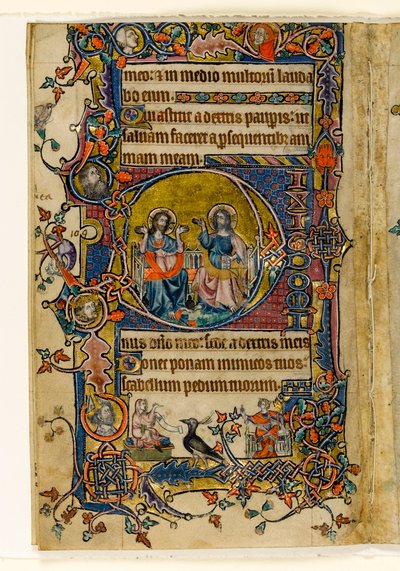 meo: & in medio multorū lauda
bo eum.
Quia astitit a dextris paupis: ut
saluam faceret a psequentibꝫ ani
mam meam.
D
IXIT DOMI
nus dño meo: sede a dextris meis
Donec ponam inimicos tuos:
scabellum pedum tuorum.